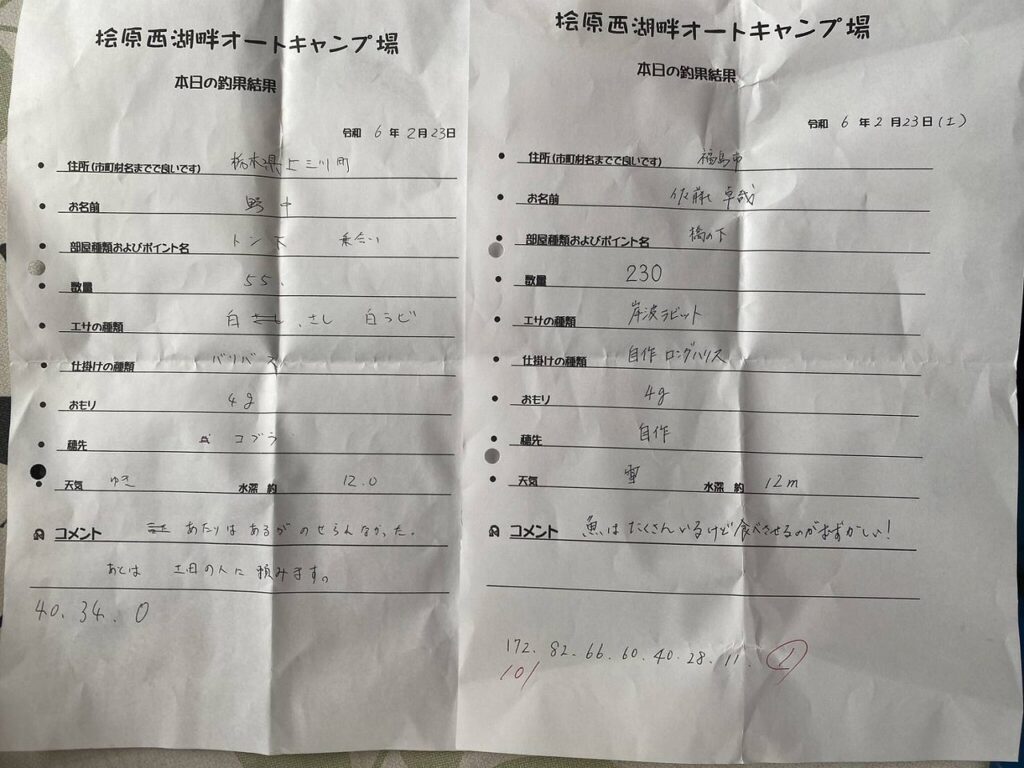 桧原西湖畔オートキャンプ場
本日の釣果結果
令和 6 年 2 月 23 日
住所(市町村名までで良いです) 栃木県上三川町
お名前 野中
部屋種類およびポイント名 トン下 乗合い
数量 55.
エサの種類 白 さし 白ラビ
仕掛けの種類 バリバス
おもり 4g
穂先 コブラ
天気 ゆき 水深 約 12.0
コメント あたりはあるがのせらんなかった。
あとは 土日の人に頼みます。
40. 34. 0
桧原西湖畔オートキャンプ場
本日の釣果結果
令和 6 年 2 月 23 日(土)
住所(市町村名までで良いです) 福島市
お名前 佐藤 卓哉
部屋種類およびポイント名 橋の下
数量 230
エサの種類 岸波ラビット
仕掛けの種類 自作 ロングハリス
おもり 4g
穂先 自作
天気 雪 水深 約 12m
コメント 魚はたくさんいるけど食べさせるのがむずかしい!
172. 82. 66. 60. 40. 28. 11.
101